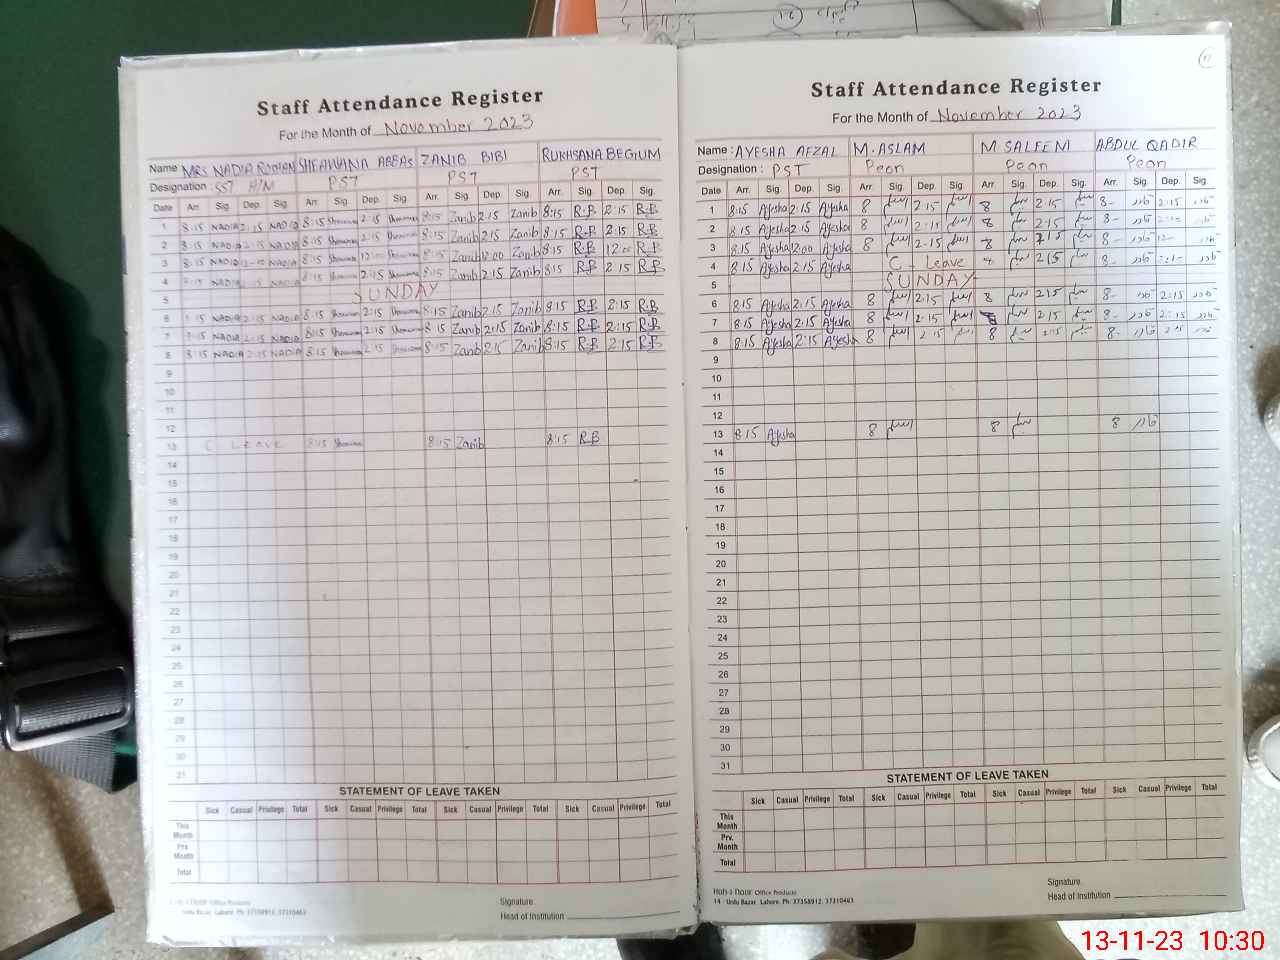 Staff Attendance Register
For the Month of November 2023
Name MRS NADIA SHEAWANA ABBAS ZANIB BIBI RUKHSANA BEGIUM
Designation : SST H/M PST PST PST
Date Arr. Sig. Dep. Sig. Arr. Sig. Dep. Sig. Arr. Sig. Dep. Sig. Arr. Sig. Dep. Sig.
1 8:15 NADIA 2:15 NADIA 8:15 2:15 8:15 Zanib 2:15 Zanib 8:15 R.B 2:15 R.B
2 8:15 NADIA 2:15 NADIA 8:15 2:15 8:15 Zanib 2:15 Zanib 8:15 R.B 2:15 R.B
3 8:15 NADIA 12:00 NADIA 8:15 12:00 8:15 Zanib 12:00 Zanib 8:15 R.B 12:00 R.B
4 8:15 NADIA 2:15 NADIA 8:15 2:15 8:15 Zanib 2:15 Zanib 8:15 R.B 2:15 R.B
5 SUNDAY
6 8:15 NADIA 2:15 NADIA 8:15 2:15 8:15 Zanib 2:15 Zanib 8:15 R.B 2:15 R.B
7 8:15 NADIA 2:15 NADIA 8:15 2:15 8:15 Zanib 2:15 Zanib 8:15 R.B 2:15 R.B
8 8:15 NADIA 2:15 NADIA 8:15 2:15 8:15 Zanib Zanib 8:15 R.B 2:15 R.B
9
10
11
12
13 C Leave 8:15 8:15 Zanib 8:15 R.B
14
15
16
17
18
19
20
21
22
23
24
25
26
27
28
29
30
31
STATEMENT OF LEAVE TAKEN
Sick Casual Privilege Total Sick Casual Privilege Total Sick Casual Privilege Total Sick Casual Privilege Total
This Month
Prv. Month
Total
Office Products
Urdu Bazar Lahore. Ph: 37358912, 37310463
Signature
Head of Institution
17
Staff Attendance Register
For the Month of November 2023
Name : AYESHA AFZAL M.ASLAM M.SALEEM ABDUL QADIR
Designation : PST Peon Peon Peon
Date Arr. Sig. Dep. Sig. Arr. Sig. Dep. Sig. Arr. Sig. Dep. Sig. Arr. Sig. Dep. Sig.
1 8:15 Ayesha 2:15 Ayesha 8 اسلم 2:15 اسلم 8 سلیم 2:15 سلیم 8- قادر 2:15 قادر
2 8:15 Ayesha 2:15 Ayesha 8 اسلم 2:15 اسلم 8 سلیم 2:15 سلیم 8- قادر 2:15 قادر
3 8:15 Ayesha 2:00 Ayesha 8 اسلم 2:15 اسلم 8 سلیم 2:15 سلیم 8- قادر 12- قادر
4 8:15 Ayesha 2:15 Ayesha C - Leave سلیم 2:15 سلیم 8- قادر قادر
5 SUNDAY
6 8:15 Ayesha 2:15 Ayesha 8 اسلم 2:15 اسلم 8 سلیم 2:15 سلیم 8- قادر 2:15 قادر
7 8:15 Ayesha 2:15 Ayesha 8 اسلم 2:15 اسلم سلیم 2:15 سلیم 8- قادر 2:15 قادر
8 8:15 Ayesha 2:15 Ayesha 8 اسلم 2:15 اسلم 8 سلیم 2:15 سلیم 8- قادر 2:15 قادر
9
10
11
12
13 8:15 Ayesha 8 اسلم 8 سلیم 8 قادر
14
15
16
17
18
19
20
21
22
23
24
25
26
27
28
29
30
31
STATEMENT OF LEAVE TAKEN
Sick Casual Privilege Total Sick Casual Privilege Total Sick Casual Privilege Total Sick Casual Privilege Total
This Month
Prv. Month
Total
Office Products
14 - Urdu Bazar Lahore. Ph: 37358912, 37310463
Signature
Head of Institution
13-11-23 10:30